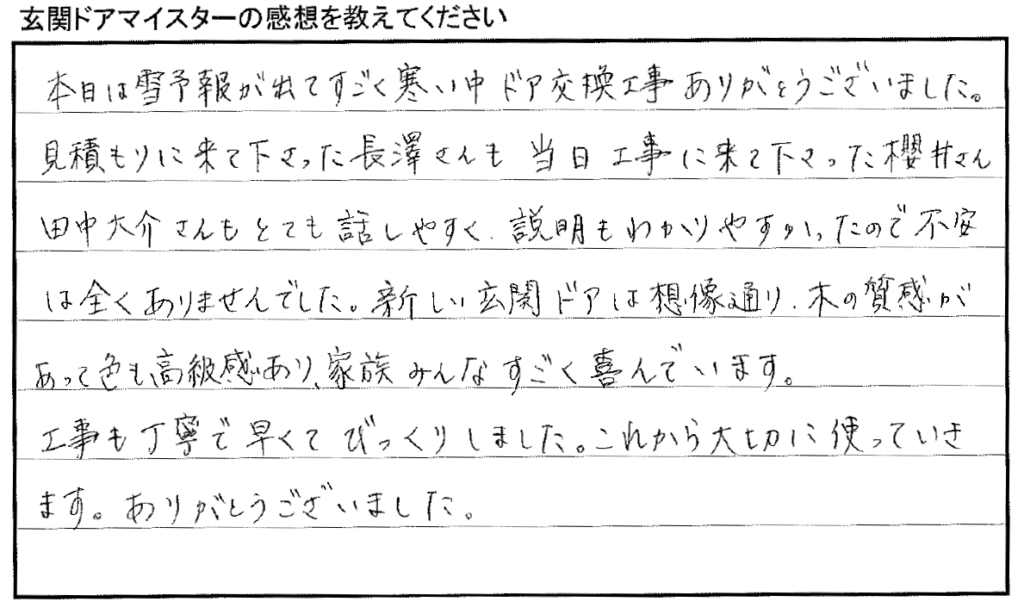 玄関ドアマイスターの感想を教えてください
本日は雪予報が出てすごく寒い中 ドア交換工事 ありがとうございました。
見積もりに来て下さった長澤さんも 当日 工事に来て下さった櫻井さん
田中大介さんもとても話しやすく、説明もわかりやすかったので不安
は全くありませんでした。新しい玄関ドアは想像通り、木の質感が
あって色も高級感あり、家族みんなすごく喜んでいます。
工事も丁寧で早くてびっくりしました。これから大切に使っていき
ます。ありがとうございました。